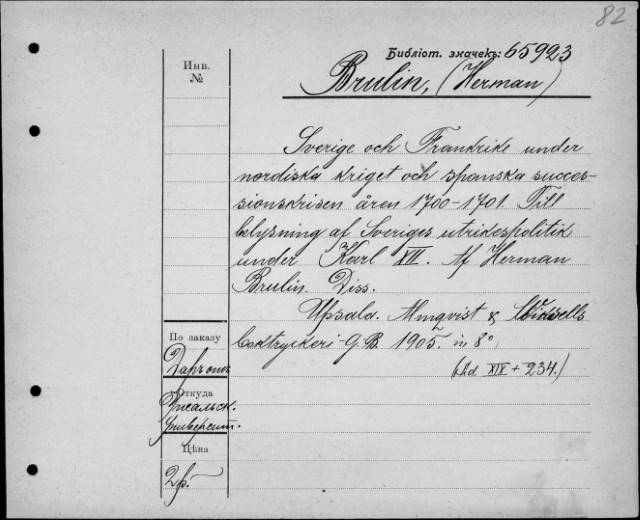 82
Библіот. значекъ: 65923
Инв.
№
Brulin, (Herman)
Sverige och Frankrike under
nordiska kriget och spanska succes-
sionskrisen åren 1700-1701. Till
belysning af Sveriges utrikespolitik
under Karl XII. Af Herman
Brulin. Diss.
Upsala. Almqvist & Wiksells
boktryckeri-G.B. 1905. in 8º.
XIV + 234.)
По заказу
Даръ отъ
Откуда
Упсальск.
Университ.
Цѣна
2р.